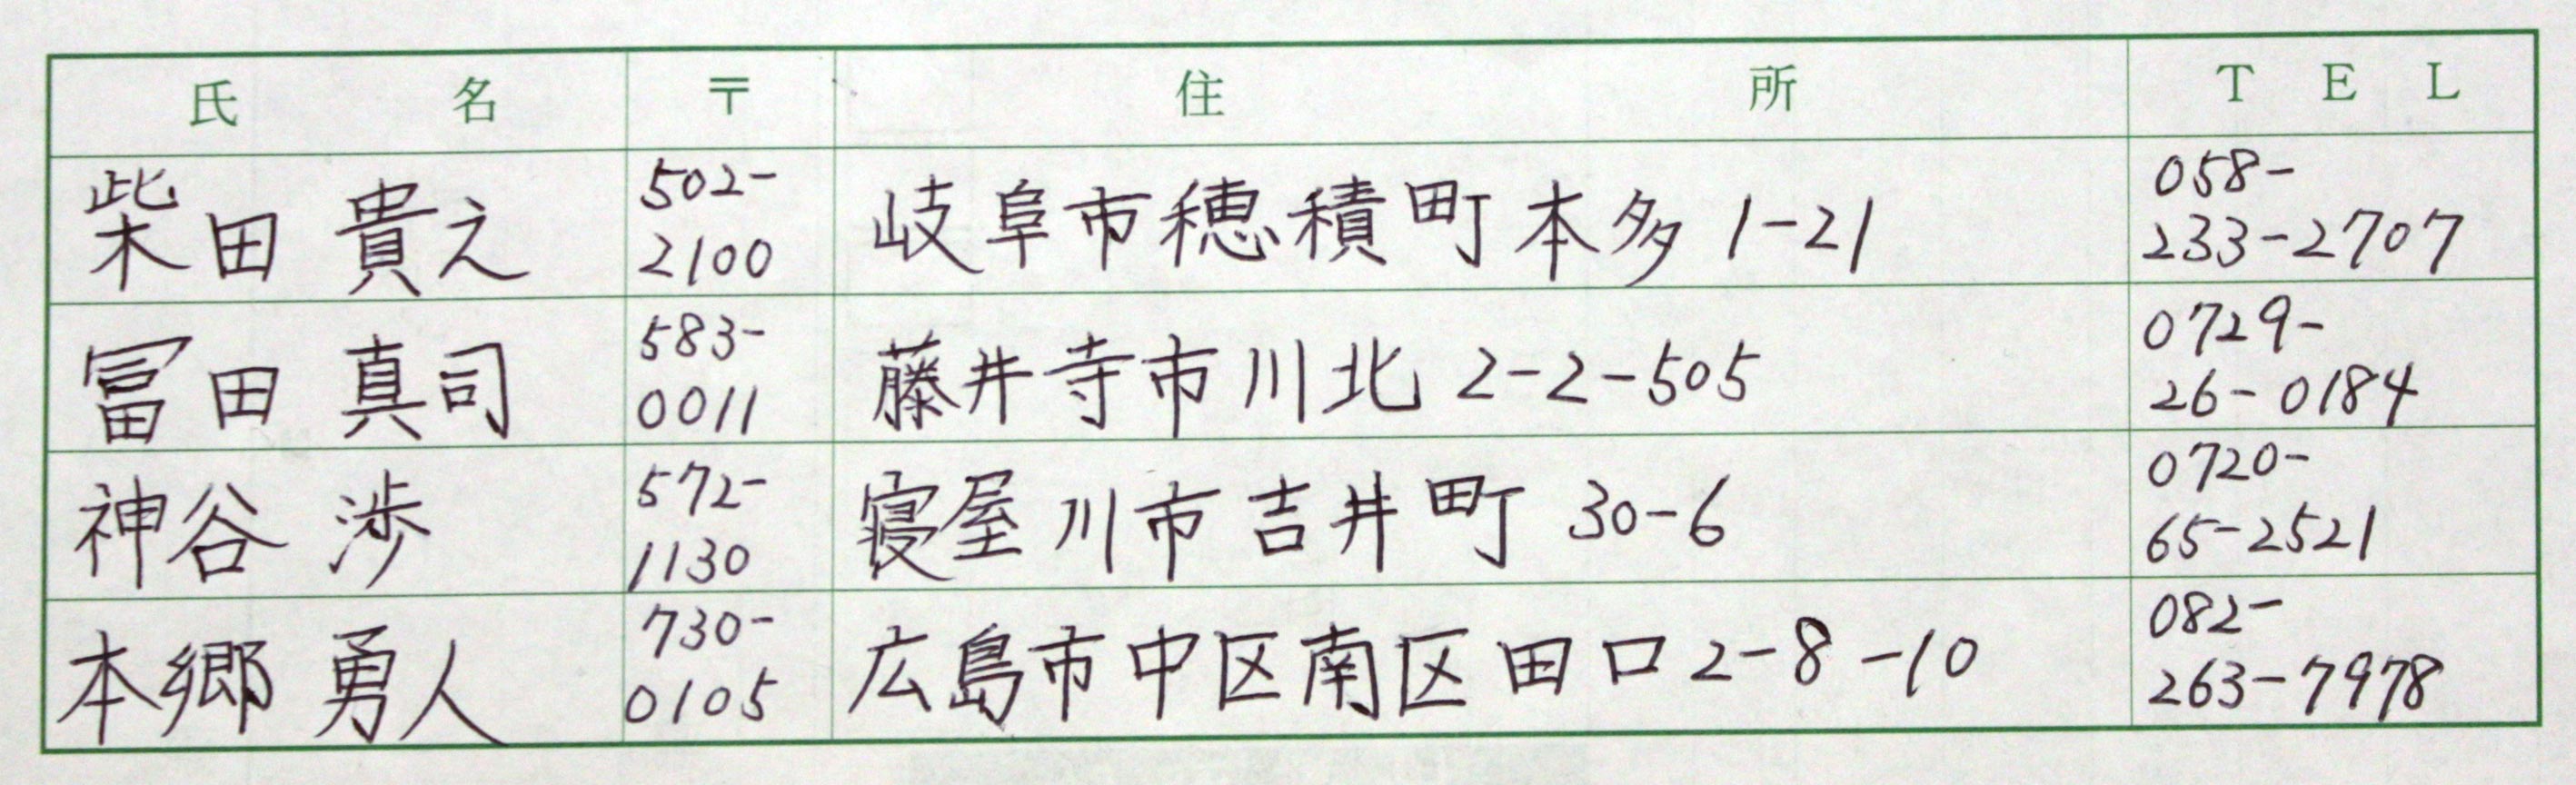 氏 名 〒 住 所 T E L
柴田 貴之 502-2100 岐阜市穂積町本多 1-21 058-233-2707
冨田 真司 583-0011 藤井寺市川北 2-2-505 0729-26-0184
神谷 渉 572-1130 寝屋川市吉井町 30-6 0720-65-2521
本郷 勇人 730-0105 広島市中区南区田口2-8-10 082-263-7978